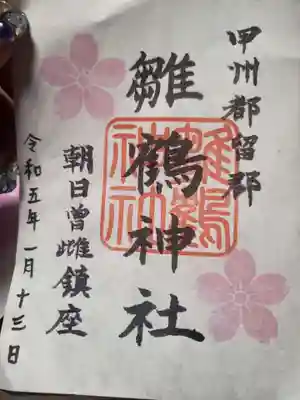 甲州都留郡
雛鶴神社
雛鶴神社
朝日曽雌鎮座
令和五年一月十三日